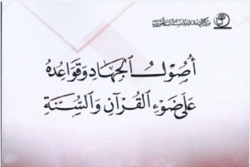 أُصُولُ الجِهَادِ وَقَوَاعِدُهُ
عَلَى ضَوْءِ القُرْآنِ وَالسُّنَّةِ